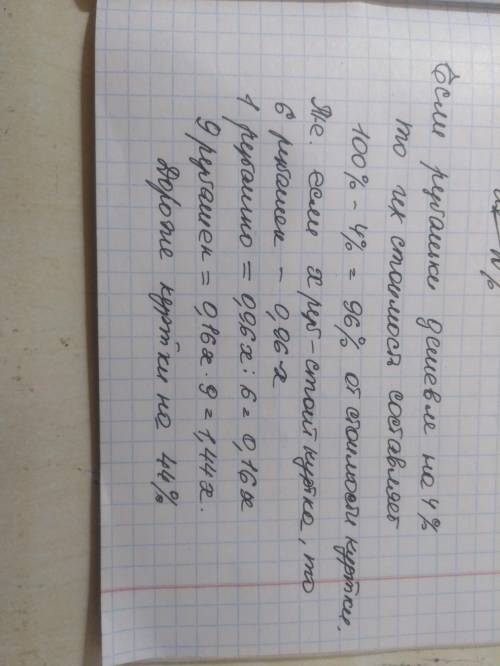 Если рубашки дешевле на 4%
то их стоимость составляет
100% - 4% = 96% от стоимости куртки.
Т.е. если х руб - стоит куртка, то
6 рубашек - 0,96х
1 рубашка = 0,96х : 6 = 0,16х
9 рубашек = 0,16х · 9 = 1,44х.
Дороже куртки на 44%